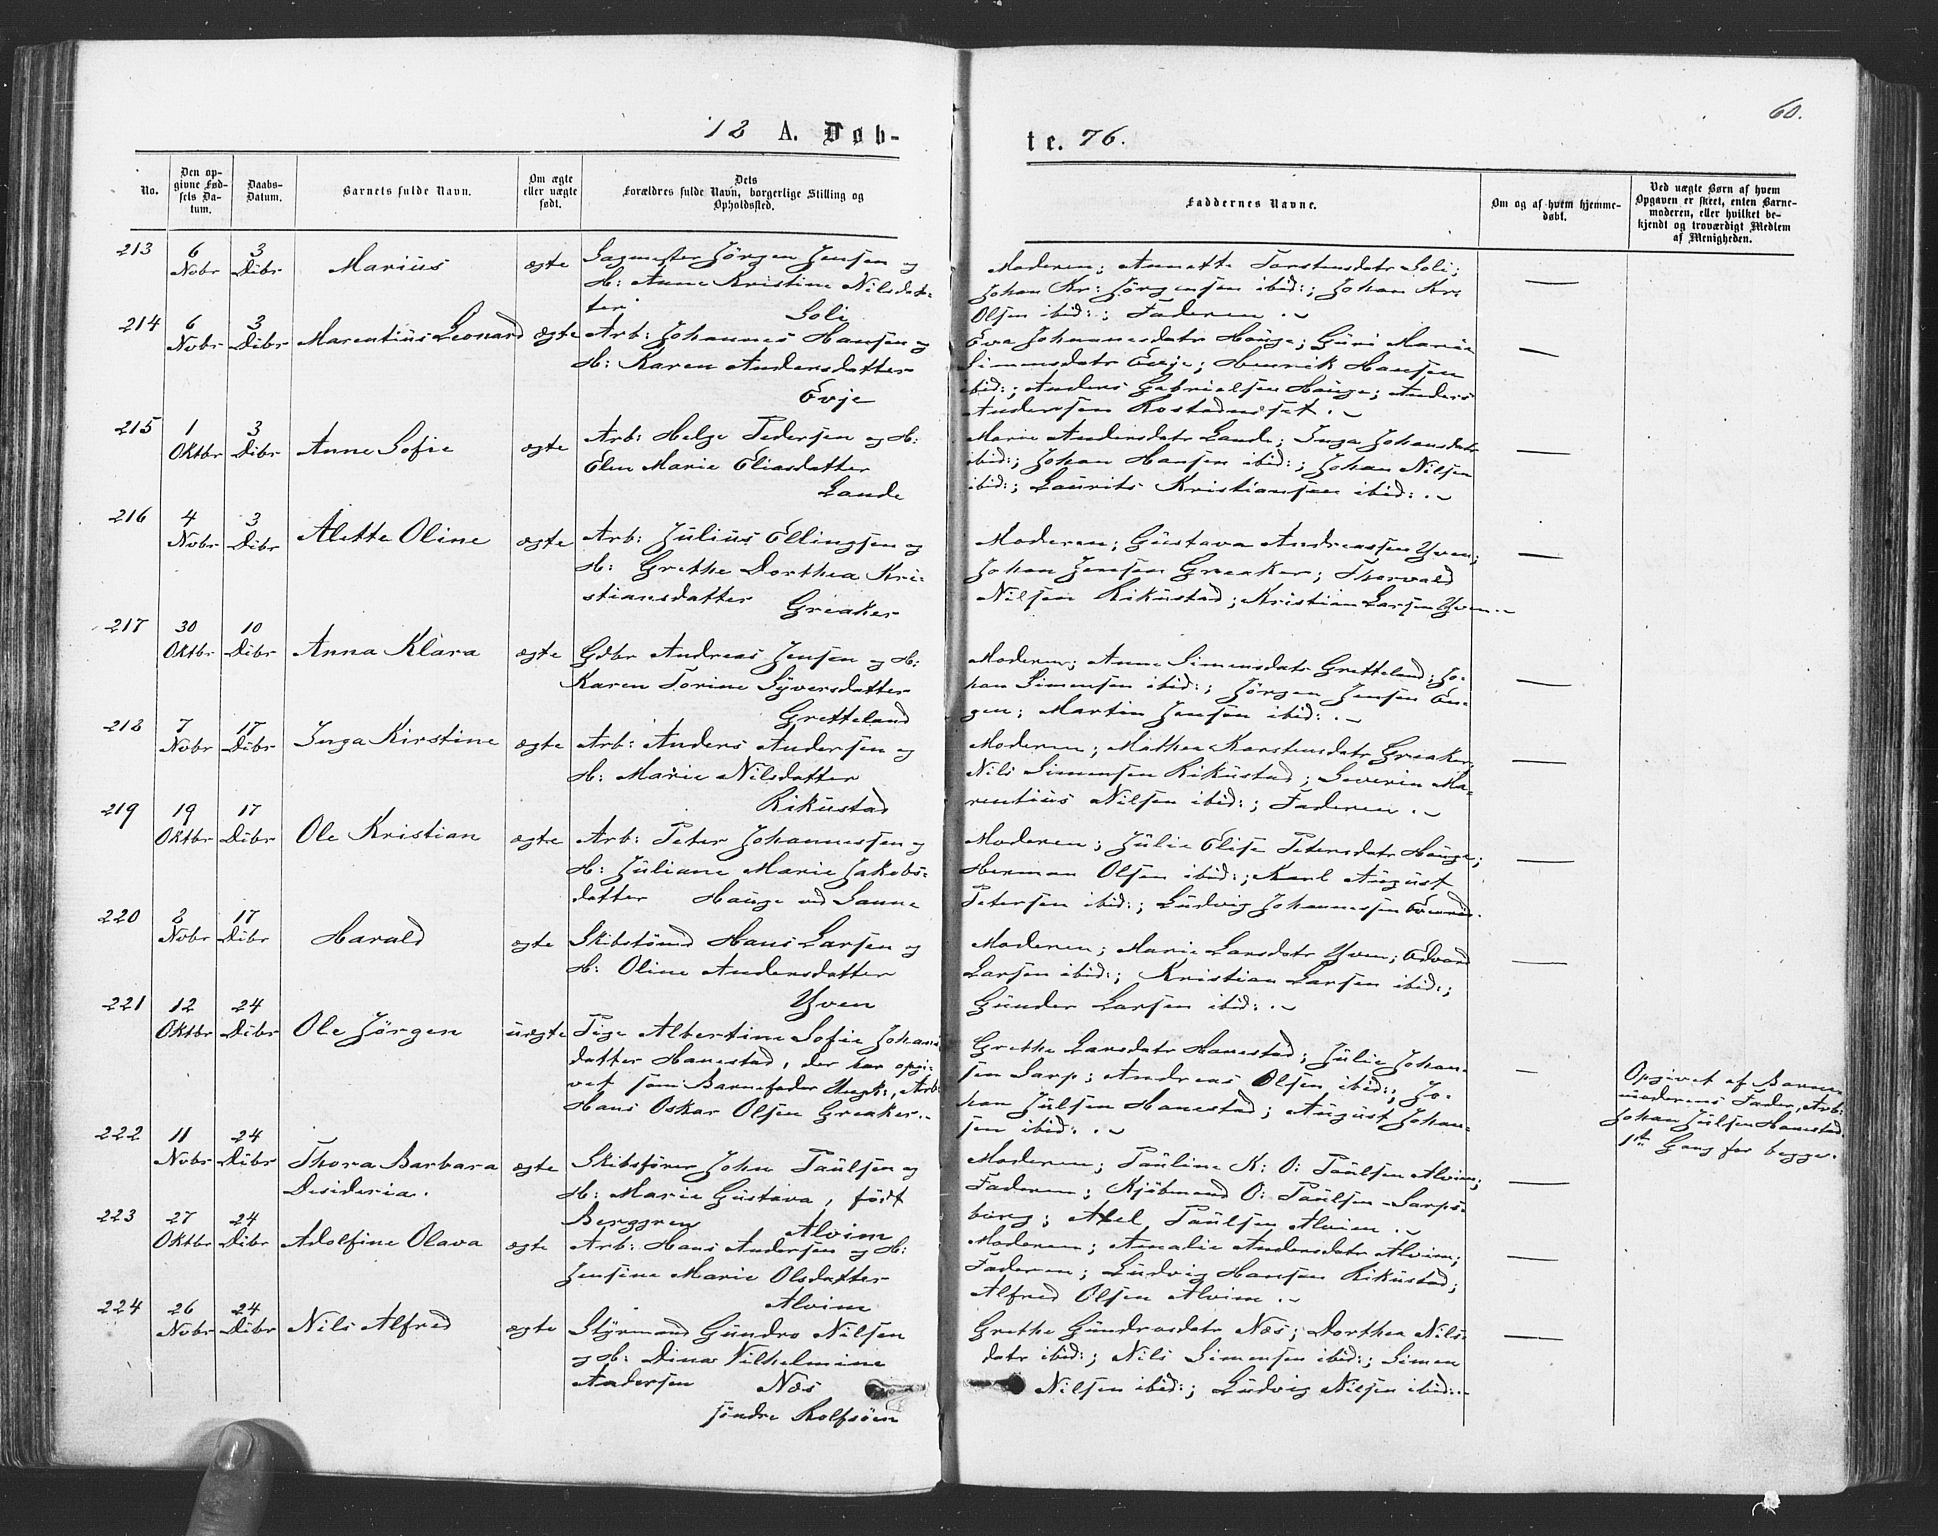 60.
18 A. Døb-
te. 76.
No.
Den op-
givne Fød-
sels Da-
tum.
Daabs-
Datum.
Barnets fulde Navn.
Om ægte
eller uægte
født.
Dets
Forældres fulde Navn, borgerlige Stilling og
Opholdssted.
Faddernes Navne.
Om og af hvem hjemme-
døbt.
Ved uægte Børn af hvem
Opgaven er skeet, enten Barne-
moderen, eller hvilket be-
kjendt og troværdigt Medlem
af Menigheden.
213 6 Nvbr 3 Dcbr Marius ægte
Sagmester Jørgen Jensen og
H: Anne Kristine Nilsdat-
ter Soli
Moderen; Annette Torstensdatr Soli;
Johan Kr: Jørgensen ibid:; Johan Kr:
Olsen ibid:; Faderen.
214 6 Nvbr 3 Dcbr Marentius Leonard ægte
Arb: Johannes Hansen og
H: Karen Andersdatter
Evje
Eva Johannesdatr Hauge; Guri Marie
Simensdatr Evje; Henrik Hansen
ibid:; Anders Gabrielsen Hauge; Anders
Andersen Rostadneset.
215 1 Oktbr 3 Dcbr Anne Sofie ægte
Arb: Helge Pedersen og H:
Elen Marie Eliasdatter
Lande
Marie Andersdatr Lande; Inga Johansdatr
ibid:; Johan Hansen ibid:; Johan Nilsen
ibid:; Laurits Kristiansen ibid:.
216 4 Nvbr 3 Dcbr Alette Oline ægte
Arb: Julius Ellingsen og
H: Grethe Dorthea Kri-
stiansdatter Greaker
Moderen; Gustava Andreassen Yven;
Johan Jensen Greaker; Thorvald
Nilsen Rikustad; Kristian Larsen Yven.
217 30 Oktbr 10 Dcbr Anna Klara ægte
Gdbr Andreas Jensen og H:
Karen Torine Syversdatter
Gretteland
Moderen; Anne Simensdatr Gretteland; Jo-
han Simensen ibid:; Jørgen Jensen En-
gen; Martin Jensen ibid:.
218 7 Nvbr 17 Dcbr Inga Kirstine ægte
Arb: Anders Andersen og
H: Marie Nilsdatter
Rikustad
Moderen; Mathea Karstensdatr Greaker;
Nils Simensen Rikustad; Severin Ma-
rentius Nilsen ibid:; Faderen.
219 19 Oktbr 17 Dcbr Ole Kristian ægte
Arb: Peter Johannessen og
H: Juliane Marie Jakobs-
datter Hauge ved Sanne
Moderen; Julie Elise Petersdatr Hauge;
Herman Olsen ibid:; Karl August
Petersen ibid:; Ludvig Johannessen
220 2 Nvbr 17 Dcbr Harald ægte
Skibstømd Hans Larsen og
H: Oline Andersdatter
Yven
Moderen; Marie Larsdatr Yven; Edvard
Larsen ibid:; Kristian Larsen ibid:;
Gunder Larsen ibid:.
221 12 Oktbr 24 Dcbr Ole Jørgen uægte
Pige Albertine Sofie Johans
datter Hanestad, der har opgi-
vet som Barnefader Ungk:, Arb:
Hans Oskar Olsen Greaker.
Grethe Larsdatr Hanestad; Julie Johan-
sen Sarp; Andreas Olsen ibid:; Jo-
han Julsen Hanestad; August Johan-
sen ibid:.
Opgivet af Barne-
moderens Fader, Arb:
Johan Julsen Hanestad
1ste Gang for begge.
222 11 Nvbr 24 Dcbr Thora Barbara
Desideria. ægte
Skibsfører John Paulsen og
H: Marie Gustava, født
Berggren Alvim
Moderen; Pauline K: O: Paulsen Alvim;
Faderen; Kjøbmand O: Paulsen Sarps-
borg; Axel Paulsen Alvim.
223 27 Oktbr 24 Dcbr Adolfine Olava ægte
Arb: Hans Andersen og H:
Jensine Marie Olsdatter
Alvim
Moderen; Amalie Andersdatr Alvim;
Faderen; Ludvig Hansen Rikustad;
Alfred Olsen Alvim.
224 26 Nvbr 24 Dcbr Nils Alfred ægte
Styrmand Gundro Nilsen
og H: Dina Vilhelmine
Andersen Næs
søndre Rolfsøen
Grethe Gundrosdatr Næs; Dorthea Nils-
datr ibid:; Nils Simensen ibid:; Simen
Nilsen ibid:; Ludvig Nilsen ibid:.